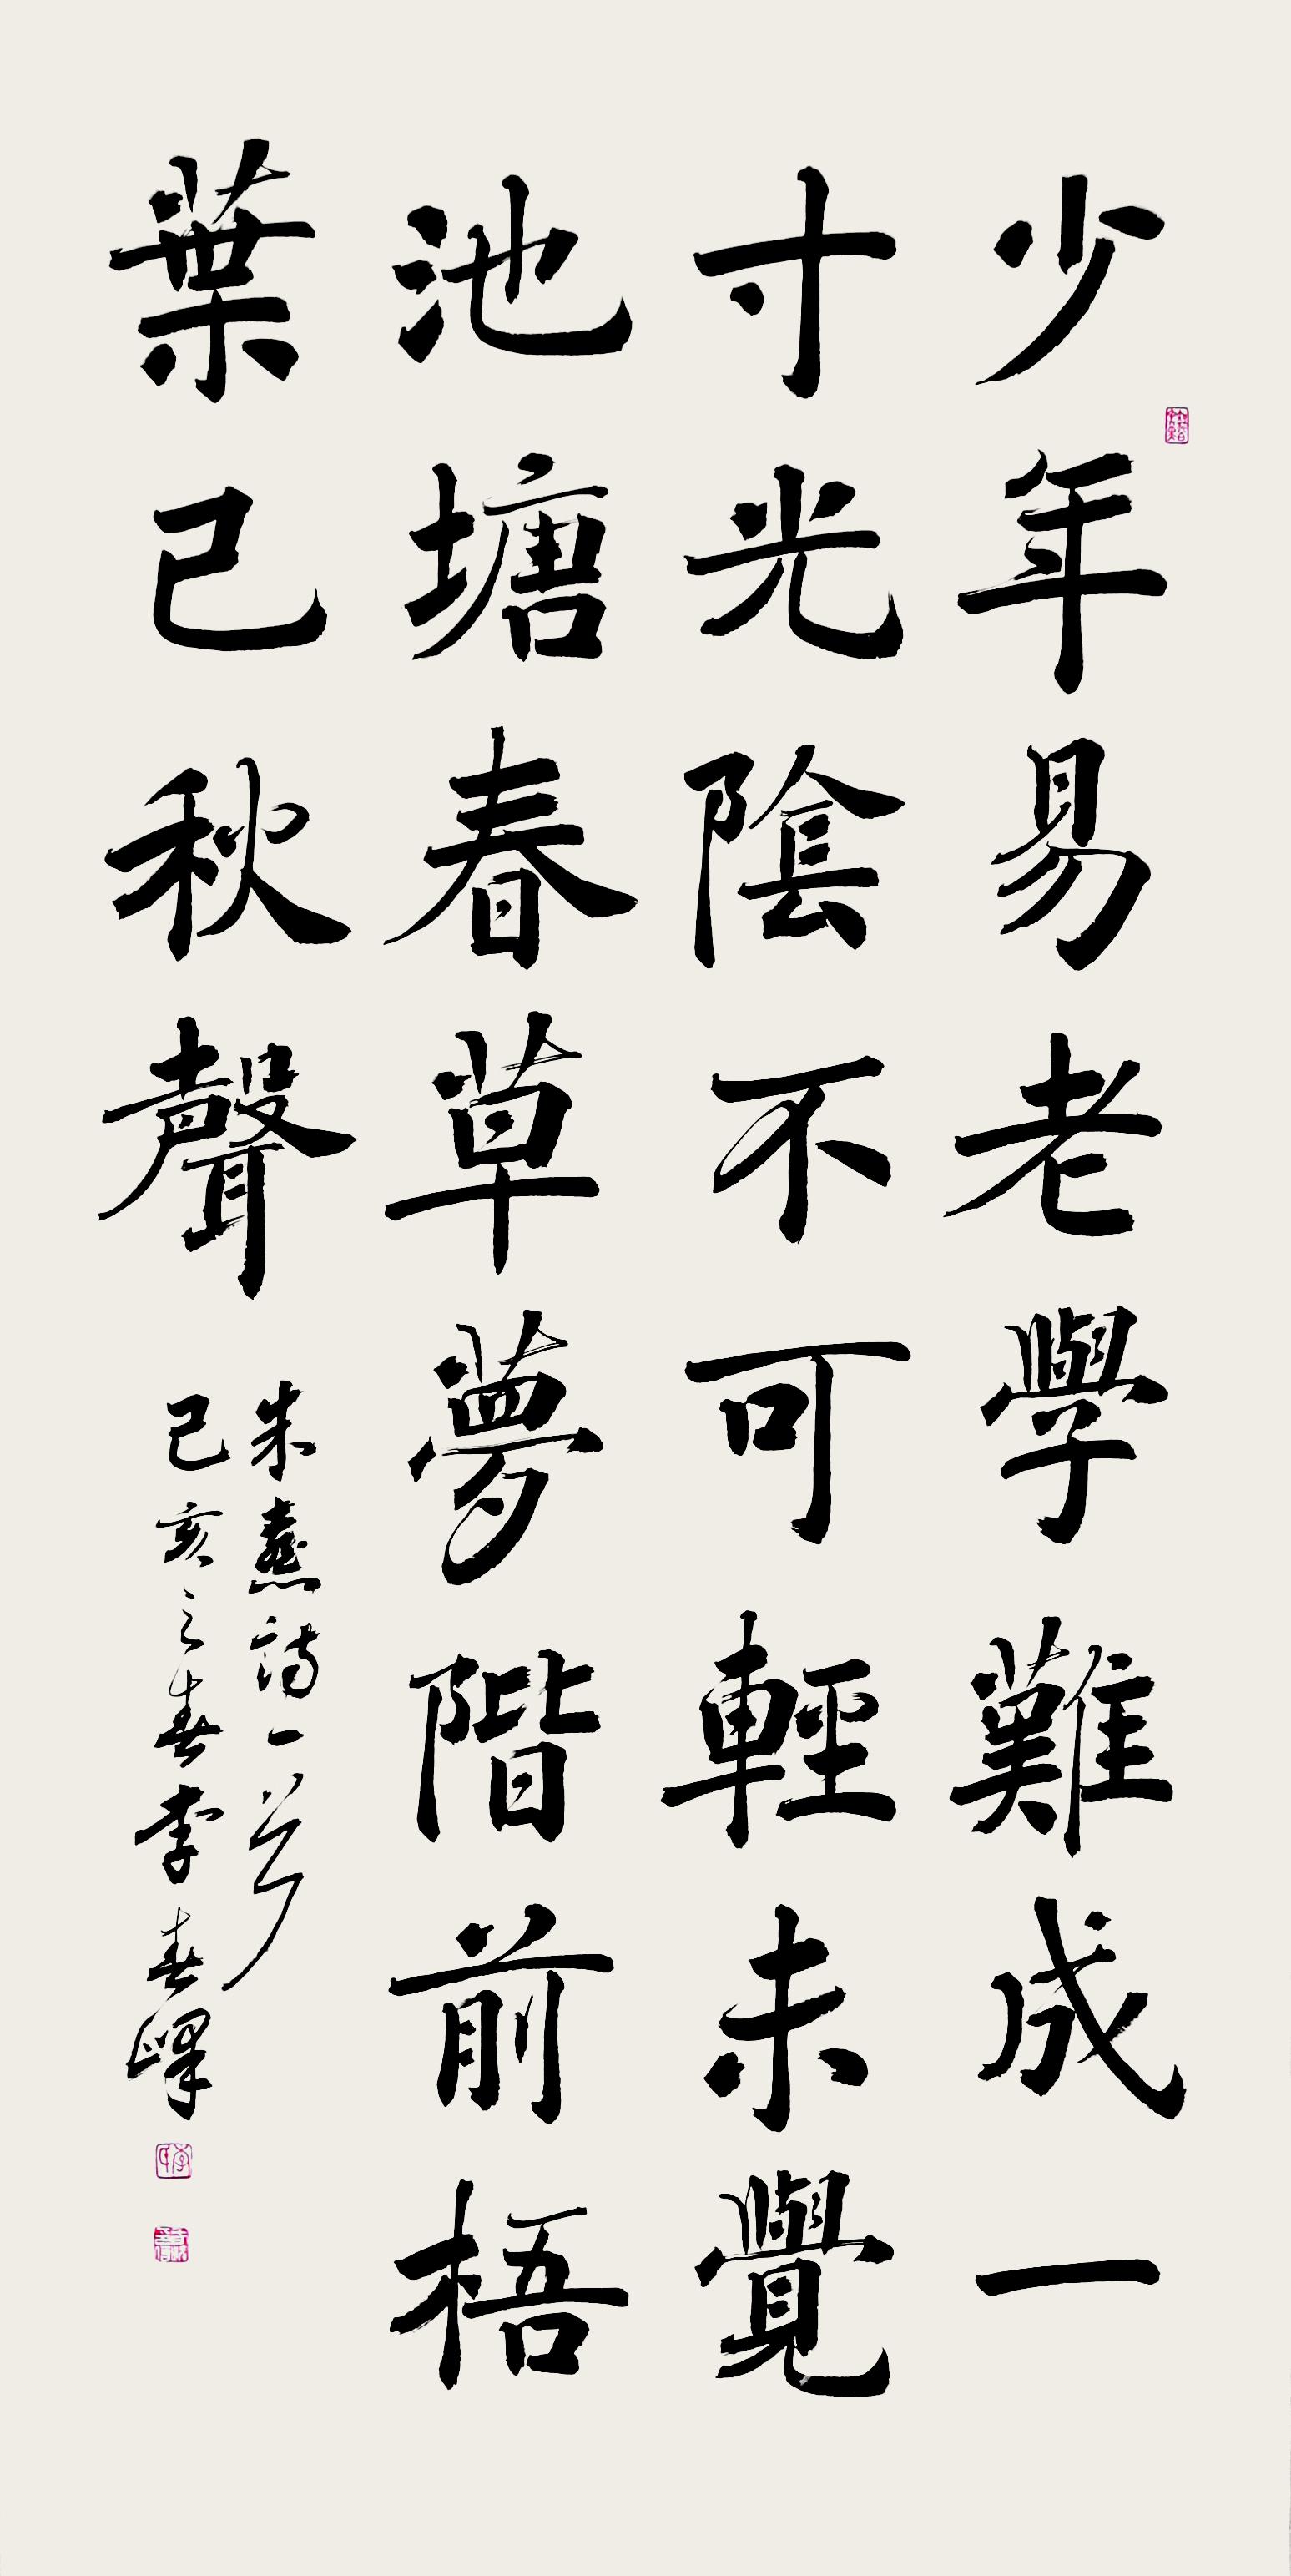 少年易老學難成一
寸光陰不可輕未覺
池塘春草夢階前梧
葉已秋聲
朱熹詩一首
己亥之春李春嶧